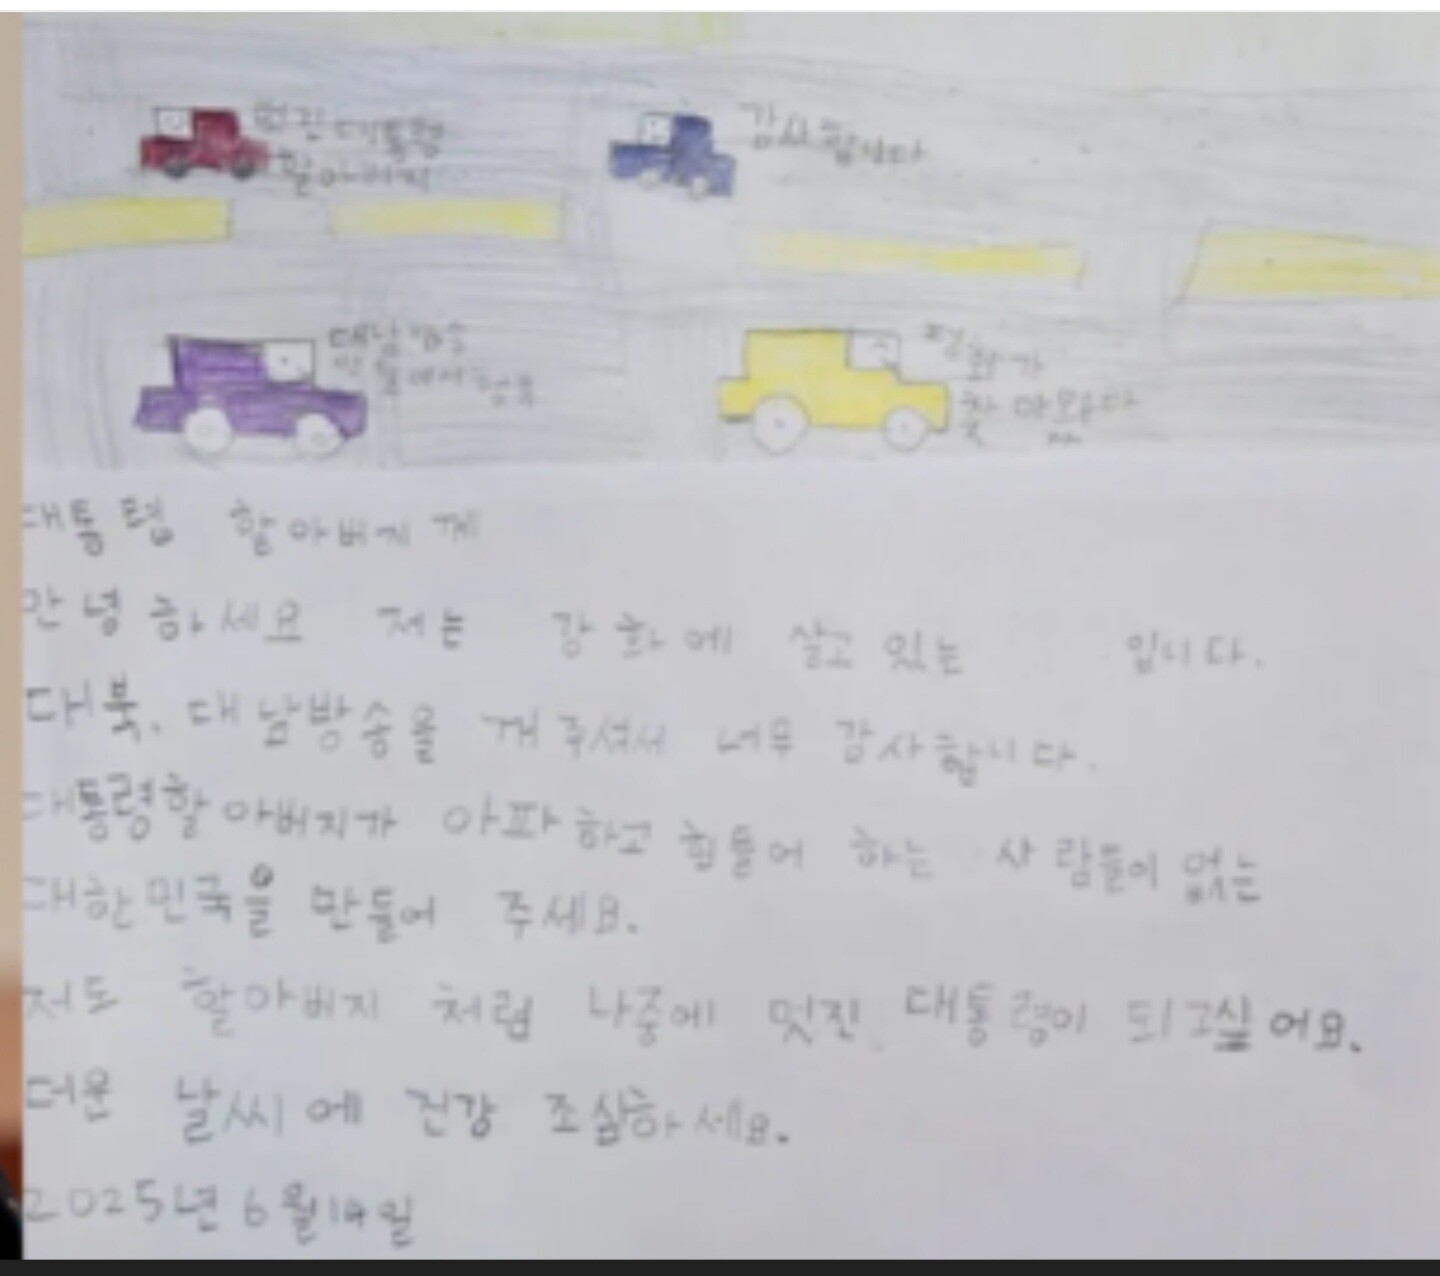 멋진 대통령
할아버지
감사합니다
대남방송
안들여서 행복
평화가
찾아왔다
대통령 할아버지께
안녕하세요 저는 강화에 살고 있는 입니다.
대북, 대남방송을 꺼주셔서 너무 감사합니다.
대통령할아버지가 아파하고 힘들어 하는 사람들이 없는
대한민국을 만들어 주세요.
저도 할아버지 처럼 나중에 멋진 대통령이 되고싶어요.
더운 날씨에 건강 조심하세요.
2025년 6월 14일